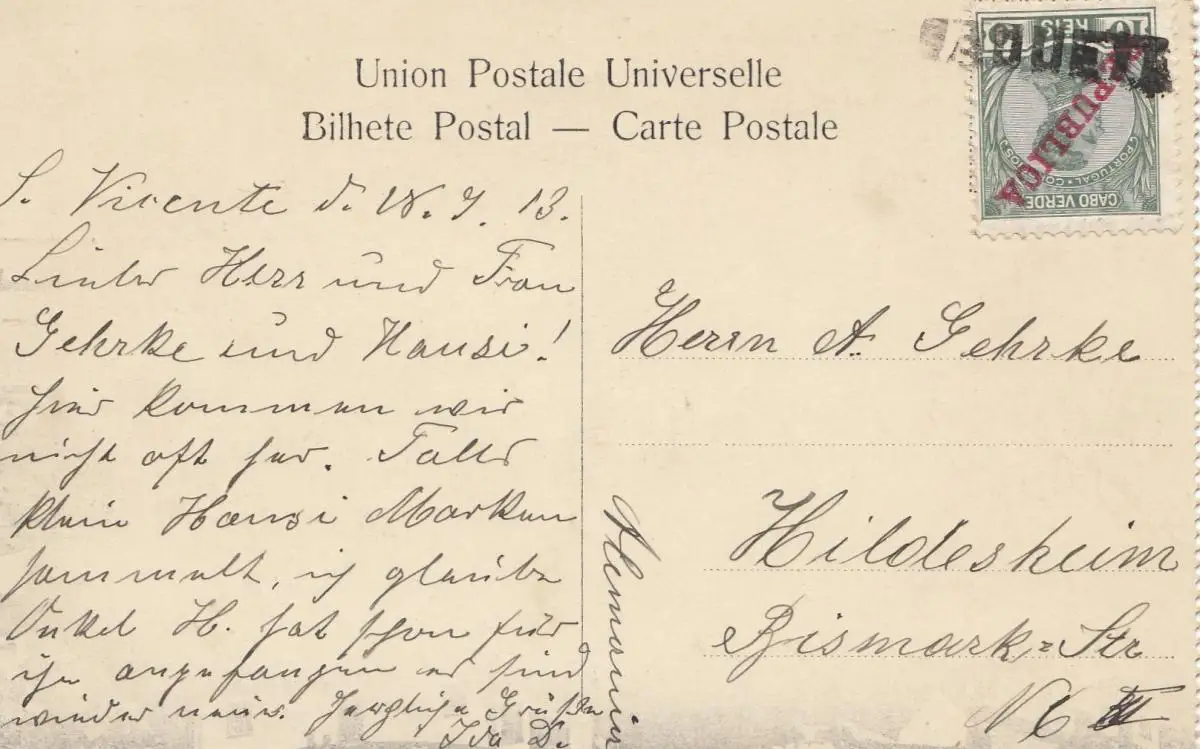 Union Postale Universelle
Bilhete Postal — Carte Postale
PAQUETE
10 REIS 10
REPUBLICA
PORTUGAL · CORREIOS
CABO VERDE
S. Vicente d. 18. 7. 13.
Lieber Herr und Frau
Gehrke und Hansi!
Hier kommen wir
nicht oft her. Falls
klein Hansi Marken
sammelt, ich glaube
Onkel H. hat schon für
ihn angefangen, er sind
wieder neue. Herzliche Grüße
Ida D.
Herrn A. Gehrke
Hildesheim
Bismark=Str